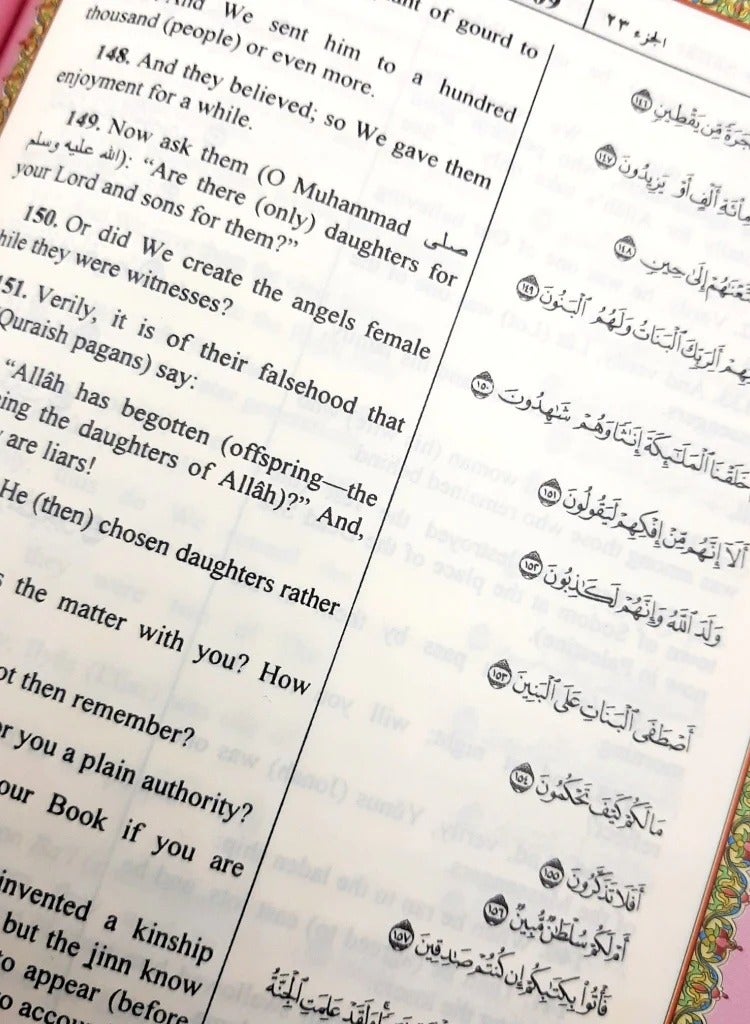 ant of gourd to
And We sent him to a hundred
thousand (people) or even more.
148. And they believed; so We gave them
enjoyment for a while.
149. Now ask them (O Muhammad صلى
الله عليه وسلم): “Are there (only) daughters for
your Lord and sons for them?”
150. Or did We create the angels female
while they were witnesses?
151. Verily, it is of their falsehood that
(Quraish pagans) say:
“Allâh has begotten (offspring—the
the daughters of Allâh)?” And,
are liars!
He (then) chosen daughters rather
the matter with you? How
then remember?
you a plain authority?
Book if you are
invented a kinship
but the jinn know
to appear (before
الجزء ٢٣
مِّن يَقْطِينٍ ١٤٦
مِاْئَةِ أَلْفٍ أَوْ يَزِيدُونَ ١٤٧
إِلَىٰ حِينٍ ١٤٨
أَلِرَبِّكَ ٱلْبَنَاتُ وَلَهُمُ ٱلْبَنُونَ ١٤٩
خَلَقْنَا ٱلْمَلَٰٓئِكَةَ إِنَٰثًا وَهُمْ شَٰهِدُونَ ١٥٠
أَلَآ إِنَّهُم مِّنْ إِفْكِهِمْ لَيَقُولُونَ ١٥١
وَلَدَ ٱللَّهُ وَإِنَّهُمْ لَكَٰذِبُونَ ١٥٢
أَصْطَفَى ٱلْبَنَاتِ عَلَى ٱلْبَنِينَ ١٥٣
مَا لَكُمْ كَيْفَ تَحْكُمُونَ ١٥٤
أَفَلَا تَذَكَّرُونَ ١٥٥
أَمْ لَكُمْ سُلْطَٰنٌ مُّبِينٌ ١٥٦
فَأْتُوا۟ بِكِتَٰبِكُمْ إِن كُنتُمْ صَٰدِقِينَ ١٥٧
وَلَقَدْ عَلِمَتِ ٱلْجِنَّةُ